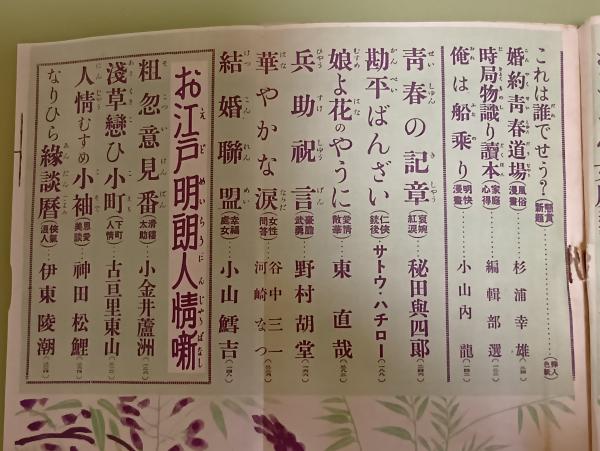 これは誰でせう? (懸賞新題) (挿入色紙)
婚約靑春道場 (風俗漫畫) 杉浦幸雄
時局物識り讀本 (家庭心得) 編輯部選
俺は船乗り (明快漫畫) 小山内龍
靑春の記章 (哀婉紅涙) 秘田與四郎
勘平ばんざい (仁俠銃後) サトウ・ハチロー
娘よ花のやうに (愛情散華) 東直哉
兵助祝言 (豪膽武勇) 野村胡堂
華やかな涙 (女性問答) 谷中三一 河崎なつ
結婚聯盟 (幸福處女) 小山鱈吉
お江戸明朗人情噺
粗忽意見番 (滑稽太助) 小金井蘆洲
淺草戀ひ小町 (下町人情) 古亘里東山
人情むすめ小袖 (恩愛美談) 神田松鯉
なりひら緣談曆 (俠氣浪人) 伊東陵潮